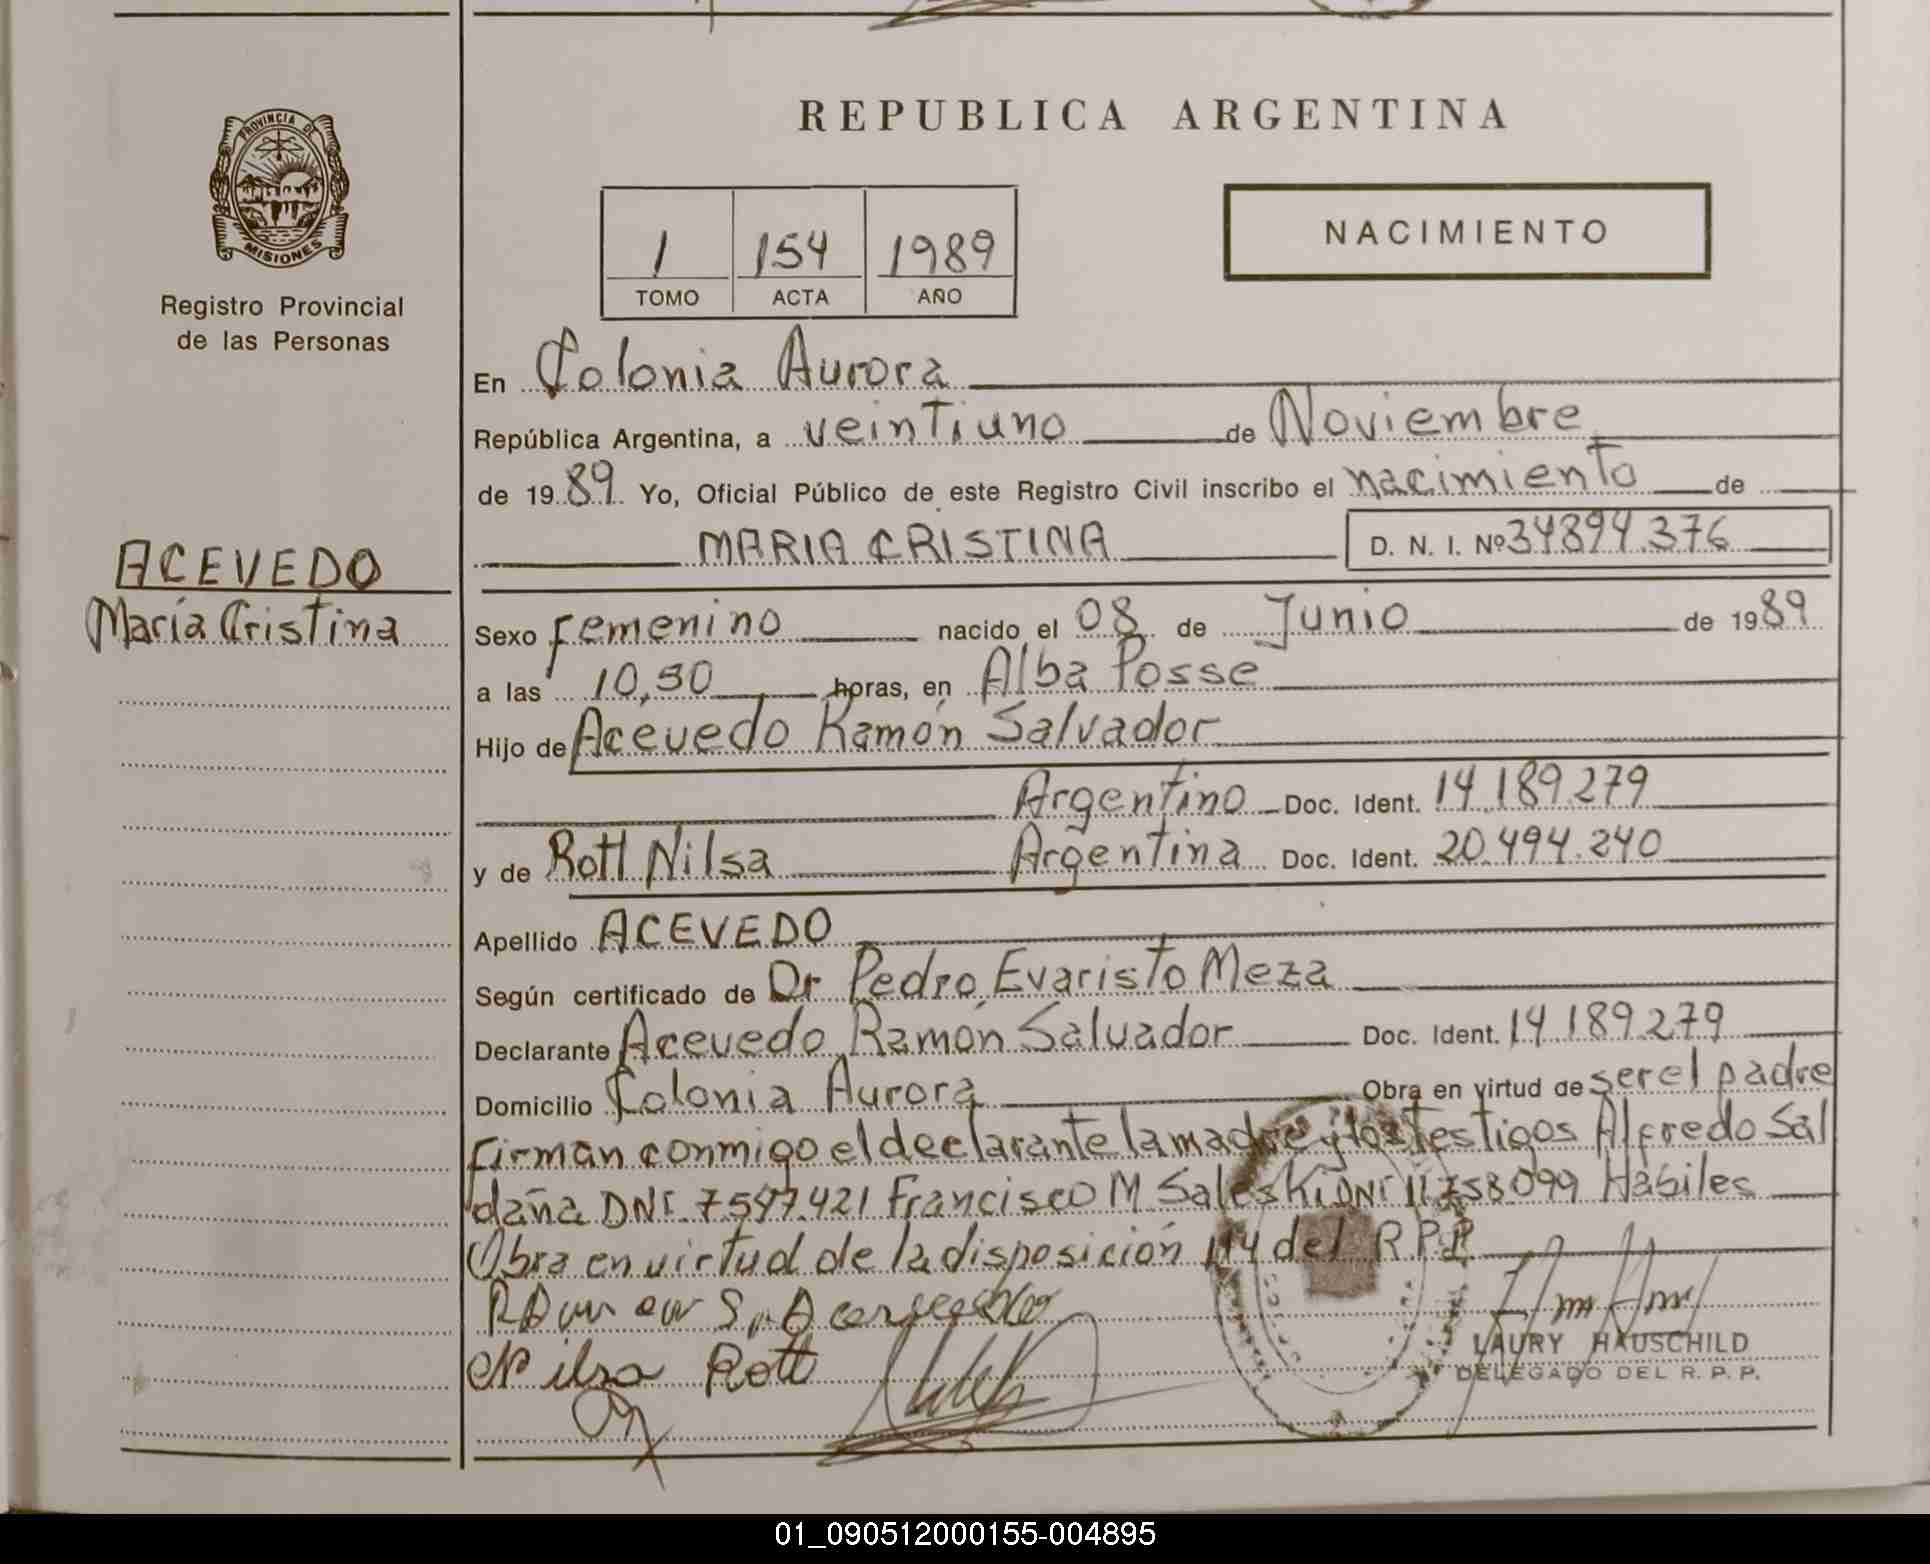 PROVINCIA DE
MISIONES
Registro Provincial
de las Personas
ACEVEDO
María Cristina
REPUBLICA ARGENTINA
1 154 1989
TOMO ACTA AÑO
NACIMIENTO
En Colonia Aurora
República Argentina, a veintiuno de Noviembre
de 1989 Yo, Oficial Público de este Registro Civil inscribo el nacimiento de
MARIA CRISTINA D. N. I. Nº 34894.376
Sexo Femenino nacido el 08 de Junio de 1989
a las 10,30 horas, en Alba Posse
Hijo de Acevedo Ramón Salvador
Argentino Doc. Ident. 14.189.279
y de Rott Nilsa Argentina Doc. Ident. 20.494.240
Apellido ACEVEDO
Según certificado de Dr Pedro Evaristo Meza
Declarante Acevedo Ramón Salvador Doc. Ident. 14.189.279
Domicilio Colonia Aurora Obra en virtud de ser el padre
Firman conmigo el declarante la madre y los testigos Alfredo Sal
daña DNI. 7.597.421 Francisco M Saleski DNI 11.758.099 Hábiles
Obra en virtud de la disposición 114 del R.P.P.
Nilsa Rott
LAURY HAUSCHILD
DELEGADO DEL R. P. P.
01_090512000155-004895